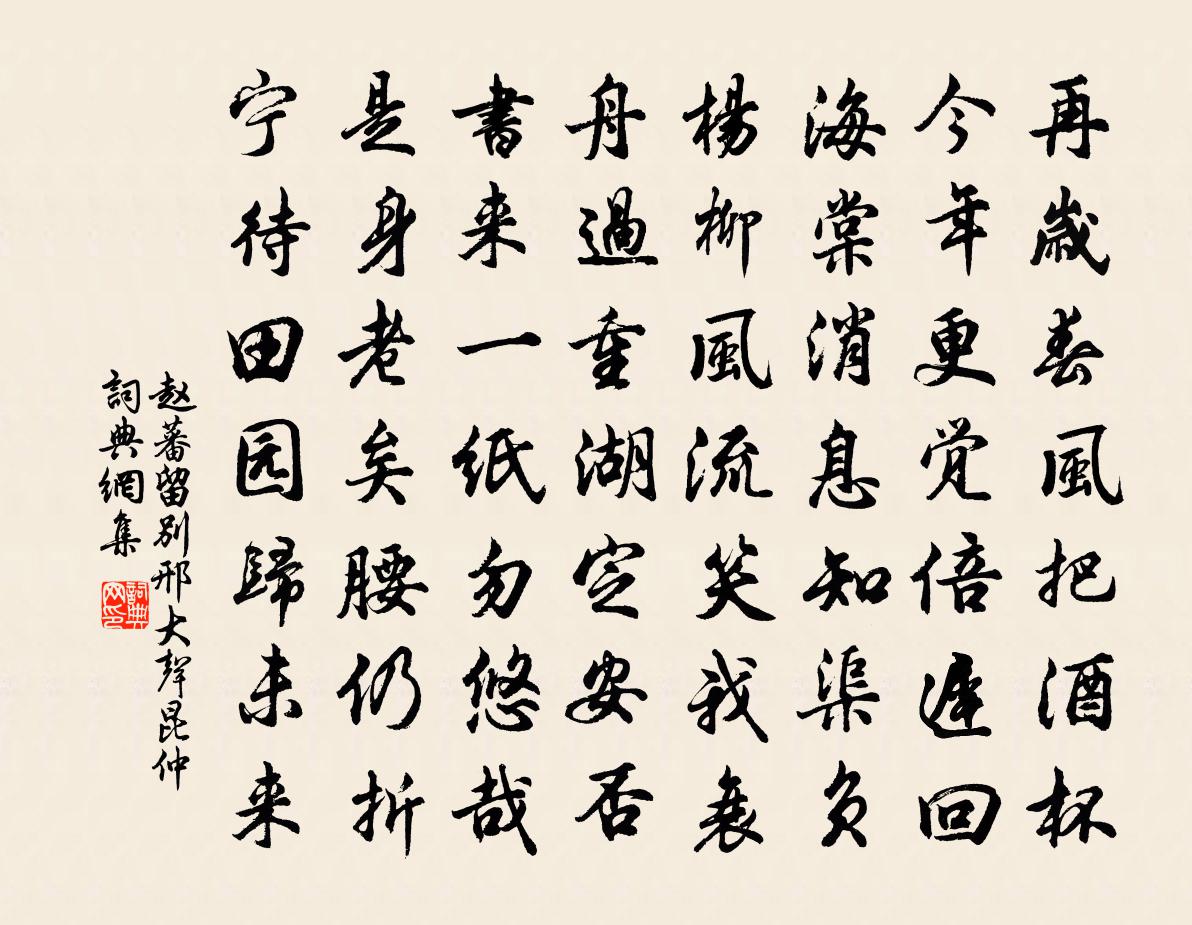 再歲春風把酒杯
今年更觉倍遲回
海棠消息知渠負
楊柳風流笑我衰
舟過重湖定安否
書来一紙勿悠哉
是身老矣腰仍折
宁待田园歸未来
赵蕃留别邢大聲昆仲
詞典網集
詞典网印